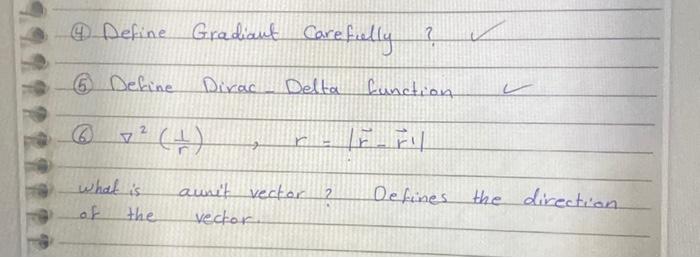 ④ Define Gradiant Carefully ? ✓
⑤ Define Dirac - Delta function ✓
⑥ ∇² (1/r) , r = |r⃗ - r⃗'|
what is aunit vector ? Defines the direction
of the vector.